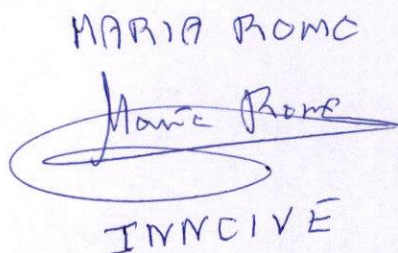 MARIA ROMC
Maria Rome
INNCIVE